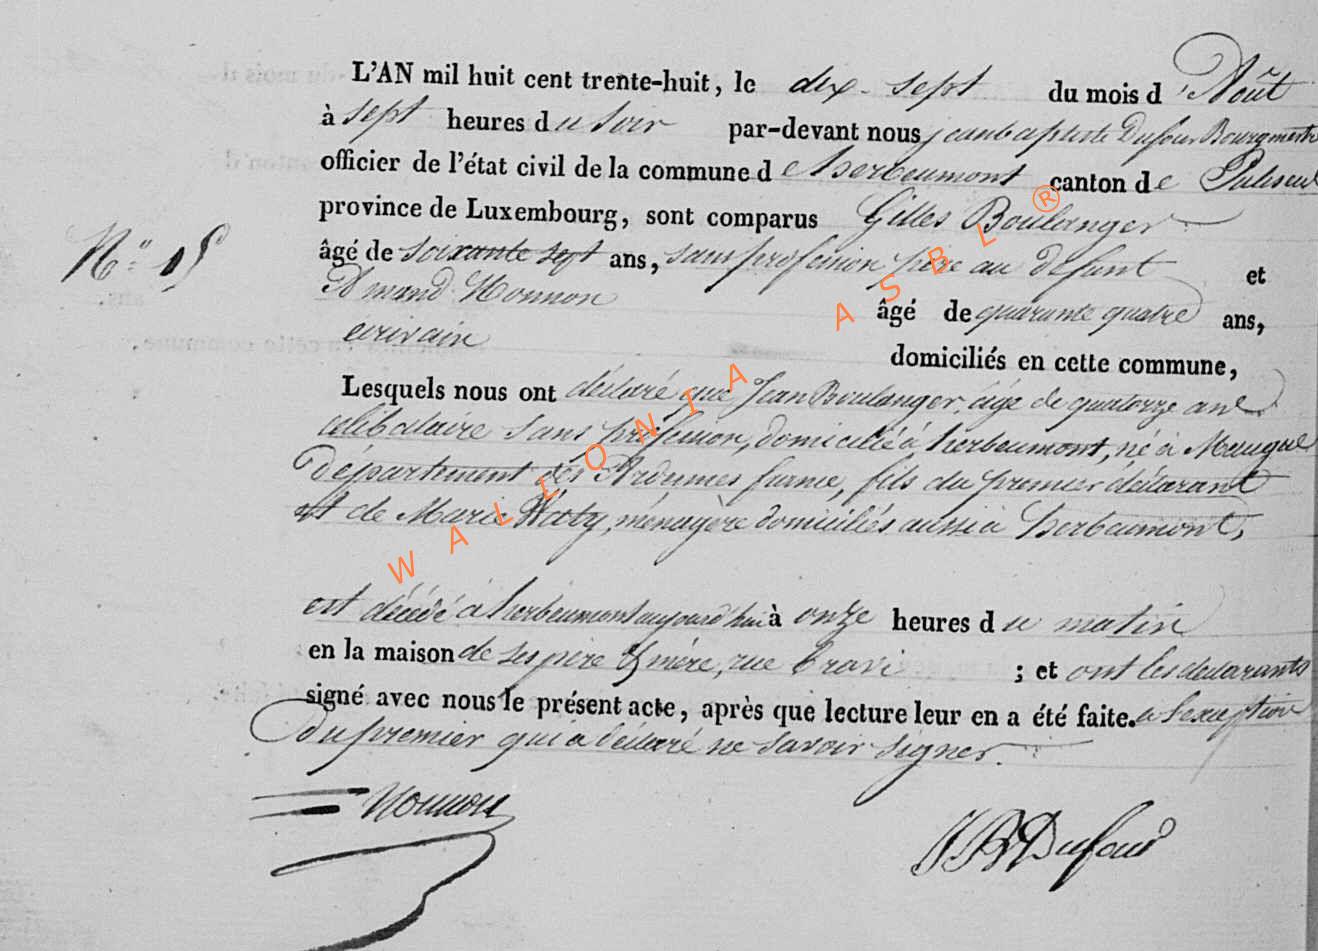 L'AN mil huit cent trente-huit, le dix-sept du mois d'Août
à sept heures du Soir par-devant nous jeanbaptiste Dufour Bourgmestre
officier de l'état civil de la commune de herbeumont canton de Paliseul
province de Luxembourg, sont comparus Gilles Boulanger
N° 15
âgé de soixante sept ans, sans profession père au défunt et
Amand Nonnon âgé de quarante quatre ans,
écrivain domiciliés en cette commune,
Lesquels nous ont déclaré que Jean Boulanger, âgé de quatorze ans
célibataire sans profession, domicilié à herbeumont, né à
département des Ardennes france, fils du premier déclarant
et de Marie Waty, ménagère domiciliés aussi à herbeumont,
est décédé à herbeumont aujourd'hui à onze heures du matin
en la maison de ses père & mère, rue Bravi ; et ont les déclarants
signé avec nous le présent acte, après que lecture leur en a été faite. a l'exception
du premier qui a déclaré ne savoir signer.
Nonnon
JB Dufour
WALLONIA ASBL ®